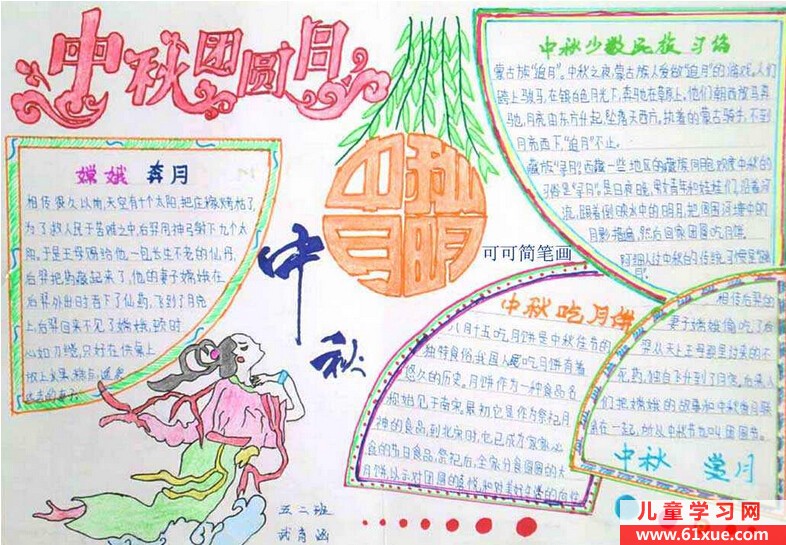 中秋团圆月
嫦娥 奔月
相传很久以前,天空有十个太阳,把庄稼烤枯了,
为了救人民于苦难之中,后羿用神弓射下九个太
阳,于是王母赐给他一包长生不老的仙丹,
后羿把药藏起来了,他的妻子嫦娥在
后羿外出时吞下了仙药,飞到了月宫
上,后羿回来不见了嫦娥,顿时
心如刀绞,只好在供桌上
放上水果,糕点,遥祭
远去的妻子。
中秋
中秋明月
可可简笔画
中秋少数民族习俗
蒙古族"追月"。中秋之夜,蒙古族人爱做"追月"的游戏。人们
跨上骏马,在银白色月光下,奔驰在草原上。他们朝西放马奔
驰,月亮由东方升起,坠落天西方。执着的蒙古骑手,不到
月亮西下,"追月"不止。
藏族"寻月"。西藏一些地区的藏族同胞欢度中秋的
习俗是"寻月"。是日夜晚,男女青年和娃娃们,沿着河
流,跟着倒映水中的明月,把周围河塘中的
月影
然后回家团圆吃月饼。
过中秋的传统
中秋吃月饼
八月十五吃月饼是中秋佳节的
独特食俗,我国人民吃月饼有着
悠久的历史。月饼作为一种食品名
现始见于南宋,最初它是作为祭祀月
神的食品,到北宋时,它已成为家家必
食的节日食品,祭祀后,全家分食圆圆的大
月饼,以示对团圆的喜悦,和对美好生活的向往
相传后羿的
妻子嫦娥偷吃了后
羿从天上王母那里讨来的不
死药,独自飞升到了月宫,后来人
们把嫦娥的故事和中秋赏月联
系在一起,所以中秋节也叫团圆节。
中秋 赏月
五二班
武肖涵
儿童学习网
www.61xue.com